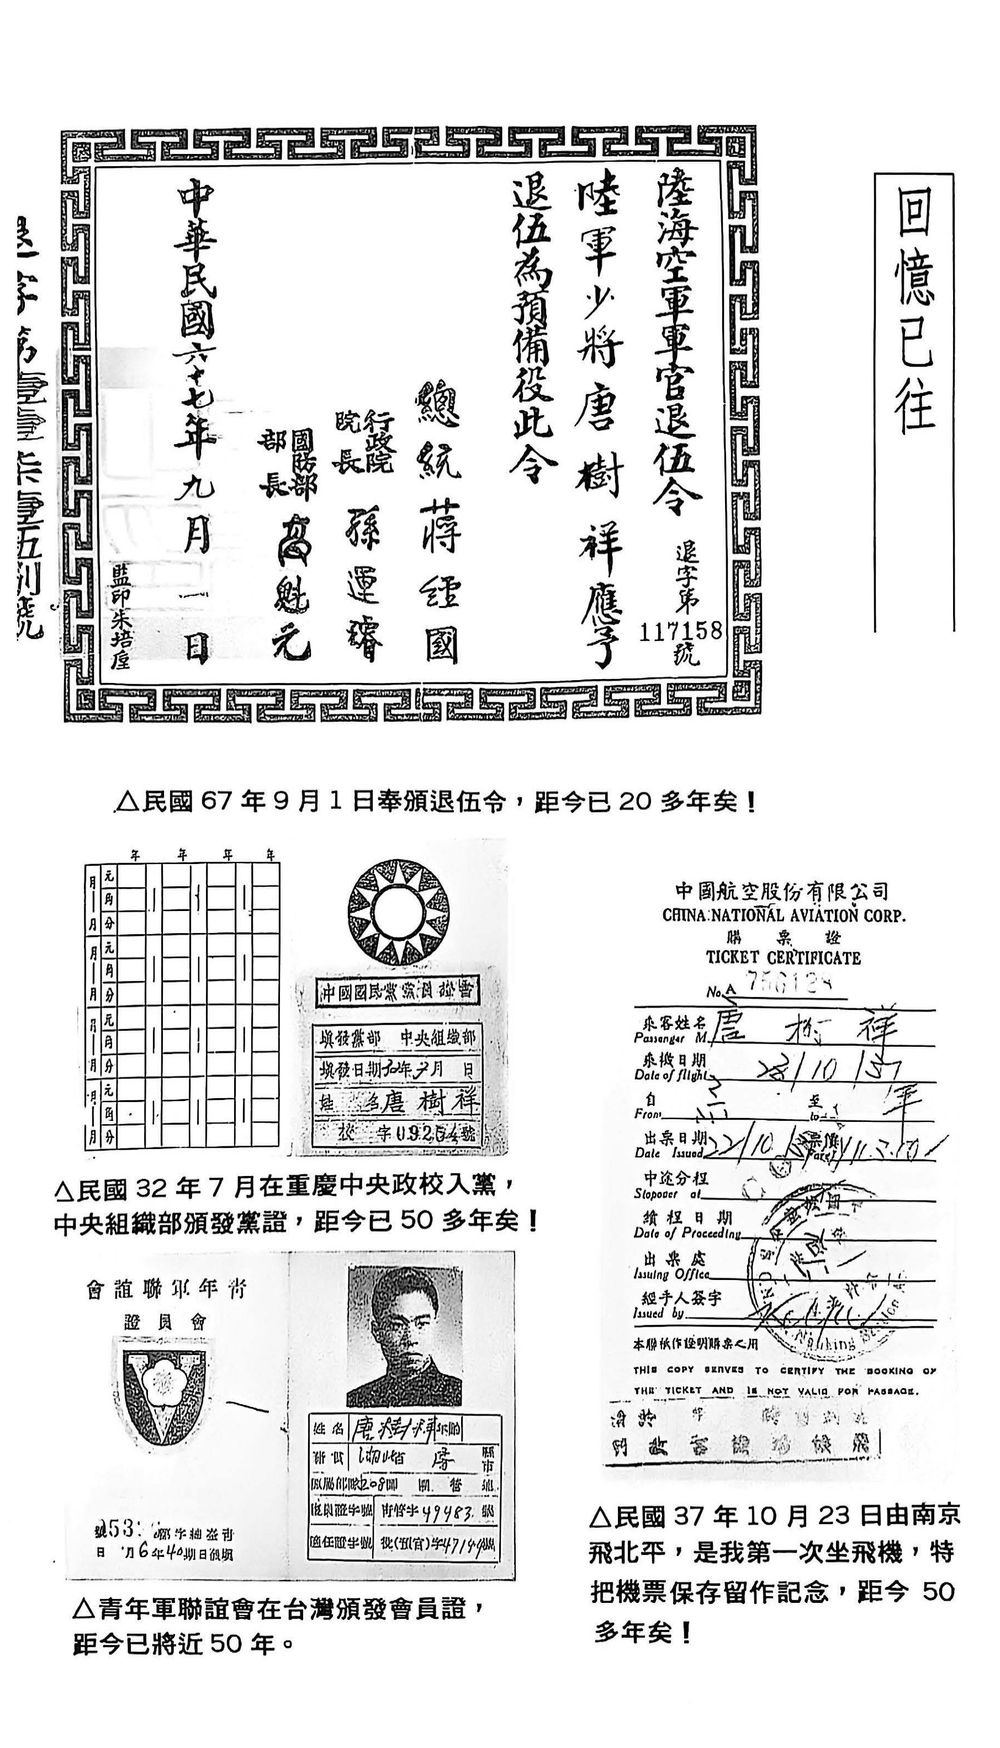 回憶已往
陸海空軍軍官退伍令
退字第
117158
號
陸軍少將唐樹祥應予
退伍為預備役此令
總統蔣經國
行政院
院長 孫運璿
國防部
部長 高魁元
中華民國六十七年九月一日
監印朱培垕
△民國 67 年 9 月 1 日奉頒退伍令，距今已 20 多年矣！
年 年 年 年
月 元
角
月 分
月 元
角
月 分
月 元
角
月 分
月 元
角
月 分
中國國民黨黨員證書
填發黨部 中央組織部
填發日期 年 月 日
姓名 唐樹祥
字 09254 號
△民國 32 年 7 月在重慶中央政校入黨，
中央組織部頒發黨證，距今已 50 多年矣！
會誼聯軍年青
證員會
姓名 唐樹祥
△青年軍聯誼會在台灣頒發會員證，
距今已將近 50 年。
中國航空股份有限公司
CHINA NATIONAL AVIATION CORP.
購票證
TICKET CERTIFICATE
No. A
乘客姓名 唐樹祥
Passenger M.
乘機日期 23/10/37
Date of flight
自 至
From to
出票日期 22/10 票價
Date Issued Fare
中途分程
Stopover at
續程日期
Date of Proceeding
出票處
Issuing Office
經手人簽字
Issued by
本聯祇作證明購票之用
THIS COPY SERVES TO CERTIFY THE BOOKING OF
THE TICKET AND IS NOT VALID FOR PASSAGE.
△民國 37 年 10 月 23 日由南京
飛北平，是我第一次坐飛機，特
把機票保存留作記念，距今 50
多年矣！